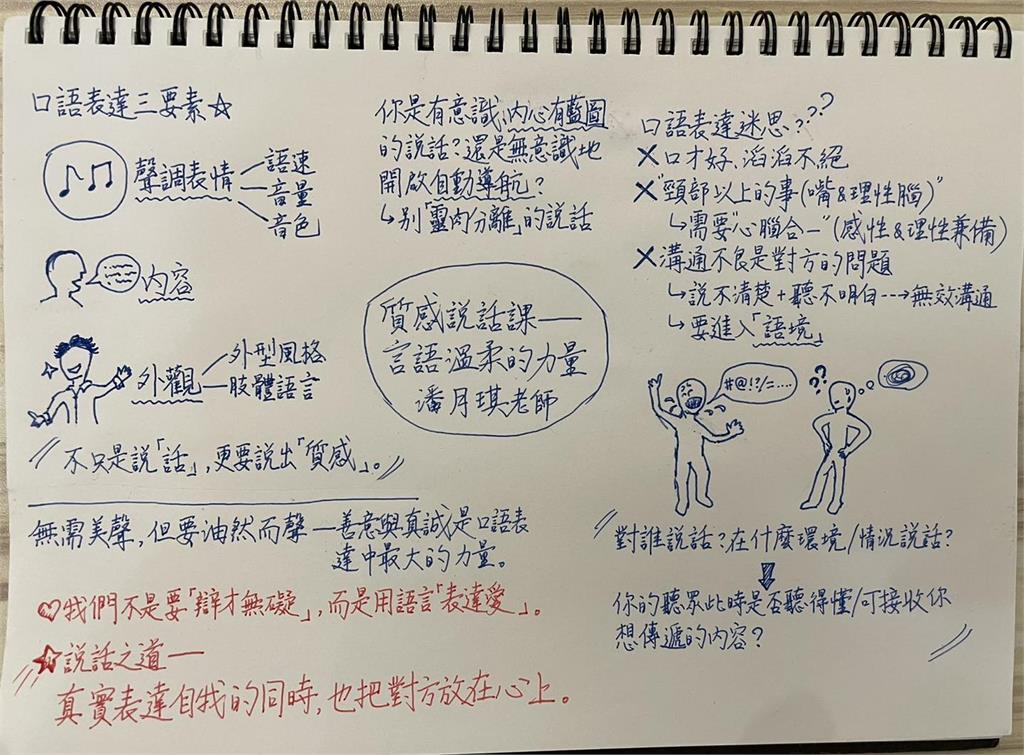 口語表達三要素☆
聲調表情
語速
音量
音色
內容
外觀
外型風格
肢體語言
"不只是說「話」,更要說出「質感」。"
無需美聲,但要油然而聲—善意與真誠是口語表
達中最大的力量。
♡我們不是要「辯才無礙」,而是用語言「表達愛」。
"☆說話之道—
真實表達自我的同時,也把對方放在心上。
你是有意識、內心有藍圖
的說話?還是無意識地
開啟自動導航?
↳別「靈肉分離」的說話
質感說話課—
言語溫柔的力量
潘月琪老師
口語表達迷思???
✕口才好、滔滔不絕
✕"頸部以上的事(嘴&理性腦)"
↳需要"心腦合一"(感性&理性兼備)
✕溝通不良是對方的問題
↳說不清楚+聽不明白--→無效溝通
↳要進入「語境」
#@!?/=....
??
"對誰說話?在什麼環境/情況說話?
↓
你的聽眾此時是否聽得懂/可接收你
想傳遞的內容?"